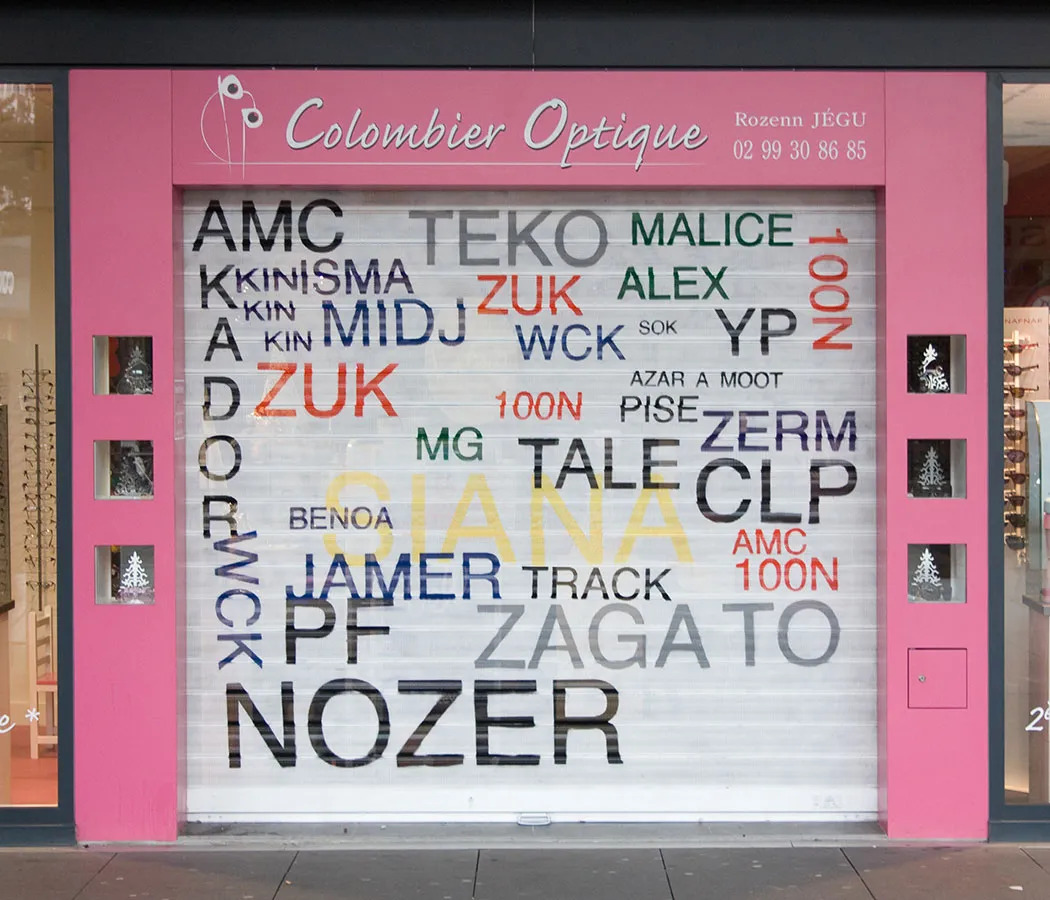 Colombier Optique
Rozenn JÉGU
02 99 30 86 85
AMC
TEKO
MALICE
100N
KADOR
KINISMA
ZUK
ALEX
KIN
MIDJ
KIN
WCK
SOK
YP
ZUK
AZAR A MOOT
100N
PISE
ZERM
MG
TALE
CLP
SIANA
BENOA
WCK
AMC
100N
JAMER
TRACK
PF
ZAGATO
NOZER
NAFNAF
e *
2è